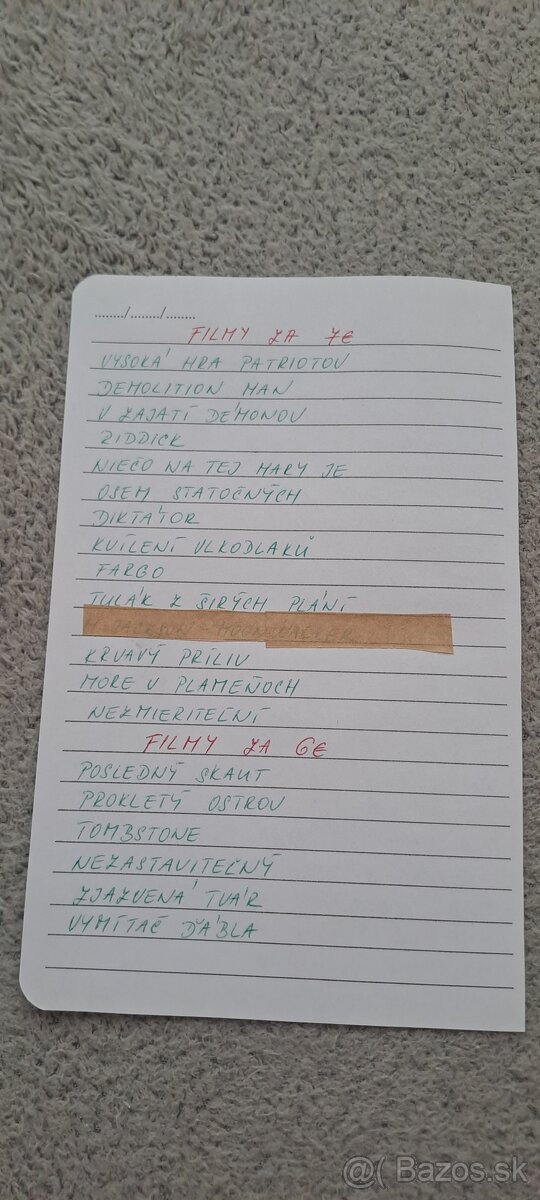 ......../......../........
FILMY ZA 7€
VYSOKÁ HRA PATRIOTOV
DEMOLITION MAN
V ZAJATÍ DÉMONOV
RIDDICK
NIEČO NA TEJ MARY JE
OSEM STATOČNÝCH
DIKTÁTOR
KVÍLENÍ VLKODLAKŮ
FARGO
TULÁK Z ŠIRÝCH PLÁNÍ
M. JACKSON - MOONWALKER
KRVAVÝ PRÍLIV
MORE V PLAMEŇOCH
NEZMIERITEĽNÍ
FILMY ZA 6€
POSLEDNÝ SKAUT
PROKLETÝ OSTROV
TOMBSTONE
NEZASTAVITEĽNÝ
ZJAZVENÁ TVÁR
VYMÍTAČ ĎÁBLA
@( Bazos.sk